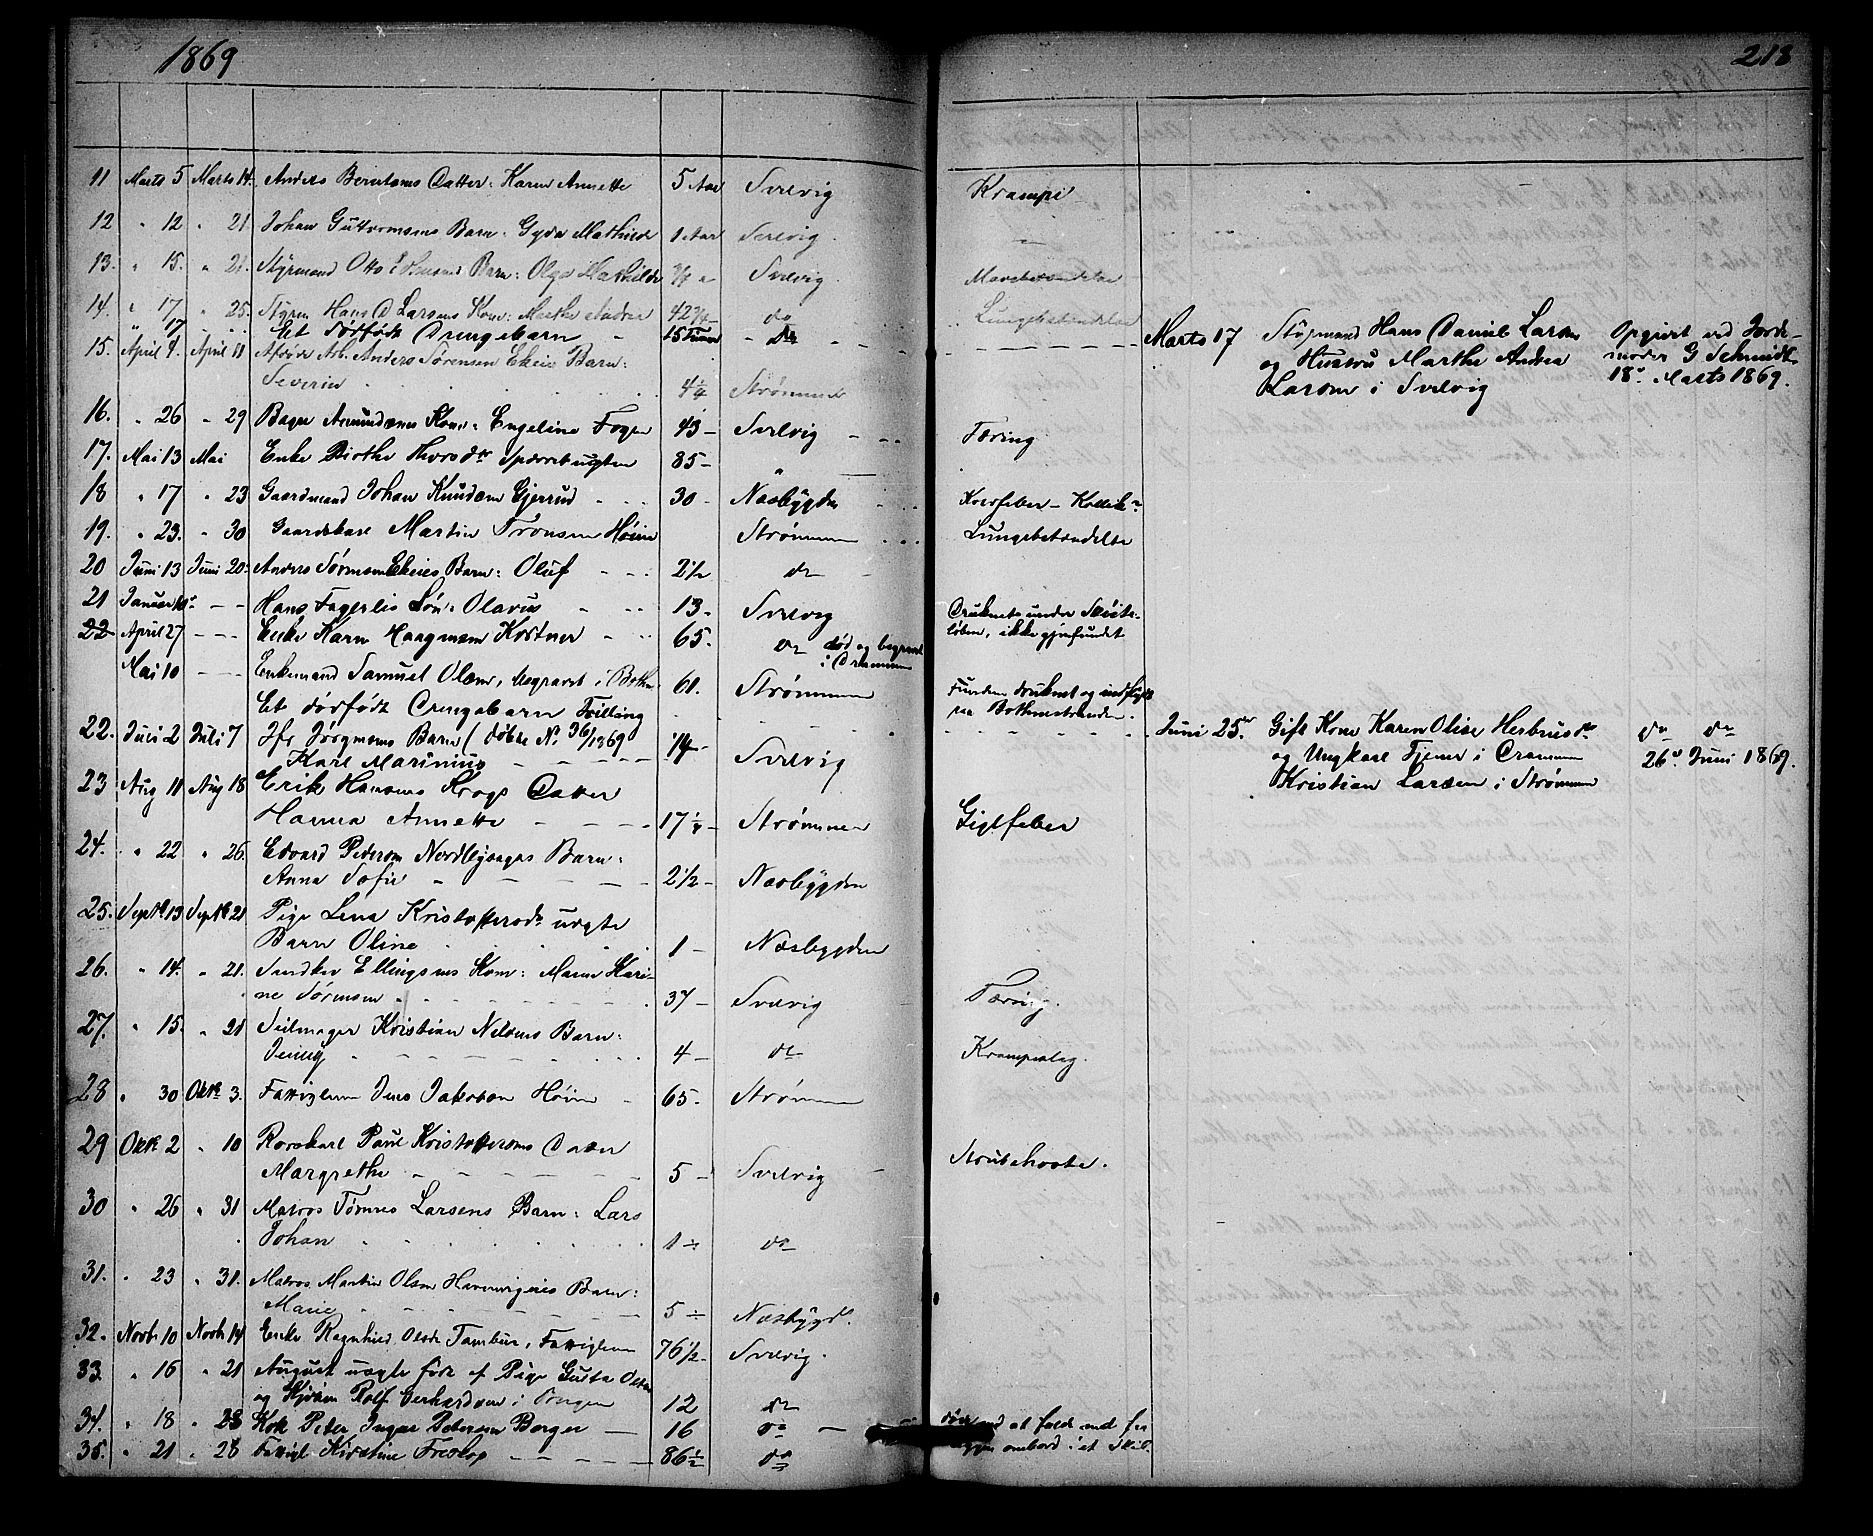 1869
218
11 Marts 5 Marts 14. Anders Berntsens Datter: Karen Annette 5 Aar Svelvig Krampe
12 " 12 " 21. Johan Guttormsens Barn: Gyda Mathilde 1 Aar Svelvig.
13. " 15. " 21. Styrmand Otto Barn: Olga Mathilde Svelvig. Mavebetændelse
14. " 17 " 25. Styrm Hans D Larsens Kone: Marthe Andrea 42 3/4 do Lungebetændelse
" 17 Et dødfødt Drengebarn do
Marts 17 Styrmand Hans Daniel Larsen
og Hustru Marthe Andrea
Larsen i Svelvig
Opgivet ved Jorde-
moder G Schmidt
18de Marts 1869.
15. April 4. April 11 Afdøde Arb. Anders Sørensen Ekeies Barn:
Severin 4 1/4 Strømmen
16. " 26 " 29 Bager Amundsens Kone: Engeline 43 - Svelvig Tæring
17. Mai 13 Mai Enke Birthe Thorsdtr Sperrebugten 85 - "
18 " 17 " 23 Gaardmand Johan Knudsen Gjerrud 30 - Nesbygden
19. " 23. " 30 Gaardskarl Martin Tronsen Høien Strømmen Lungebetændelse
20 Juni 13 Juni 20. Anders Sørensen Ekeies Barn: Oluf 2 1/2 do
21 Januar - - Hans Fagerlis Søn: Olavus 13. Svelvig
Druknete under Skøite-
løben, ikke gjenfundet
22 April 27 - - - Enke Karen Haagensen Kostner 65. do død og begravet
i Drammen
Mai 10 - - - Enkemand Samuel Olsen, begravet i 61. Strømmen
Funden druknet og indflydt
paa Bothnestranden.
Et dødfødt Drengebarn Tvilling
Juni 25de Gift Kone Karen Olise Herbrusdtr
og Ungkarl Tjener i Drammen
Kristian Larsen i Strømmen
do do
26de Juni 1869.
22. Juli 2 Juli 7 Jfr Jørgensens Barn (døbte No 36/1869
Karl Marinius 1/4 - Svelvig
23 Aug 11 Aug 18 Erik Hansens Krogs Datter
Hanna Annette 17 1/4 - Strømmen Gigtfeber
24. " 22 " 26. Edvard Pedersen Nordbysages Barn:
Anna Sofie 2 1/2 - Nesbygden
25. Septb 13 Septb 21 Pige Lena Kristoffersdtr uægte
Barn Oline 1 - Nesbygden
26. " 14. " 21. Snedker Ellingsens Kone: Maren Kari-
ne Sørensen 37 - Svelvig Tæring.
27. " 15. " 21 Seilmager Kristian Nilsens Barn:
Jenny 4 - do Krampeslag.
28 " 30 Oktb 3. Fattiglem Jens Jakobsen Høien 65. Strømmen
29 Oktb 2 " 10 Rorskarl Paul Kristoffersens Datter
Margrethe 5 - Svelvig Strubehoste.
30 " 26 " 31 Matros Tønnes Larsens Barn: Lars
Johan 1 - do
31. " 23 " 31. Matros Martin Olsen Barn:
Marie 5 - Nesbygd.
32. Novb 10 Novb 14 Enke Ragnhild Olsdr Tambur, Fattiglem 76 1/2 - Svelvig.
33. " 16 " 21 August uægte født af Pige Gusta Olsen
og Rolf Gerhardsen i 12 do
34. " 18 " 28 Kok Peter Ingar Petersen Borger - 16 do
ved at falde ned fra
ombord i et Skib.
35. " 21 " 28 Fattigl Kirstine Treskop 86 1/2 do